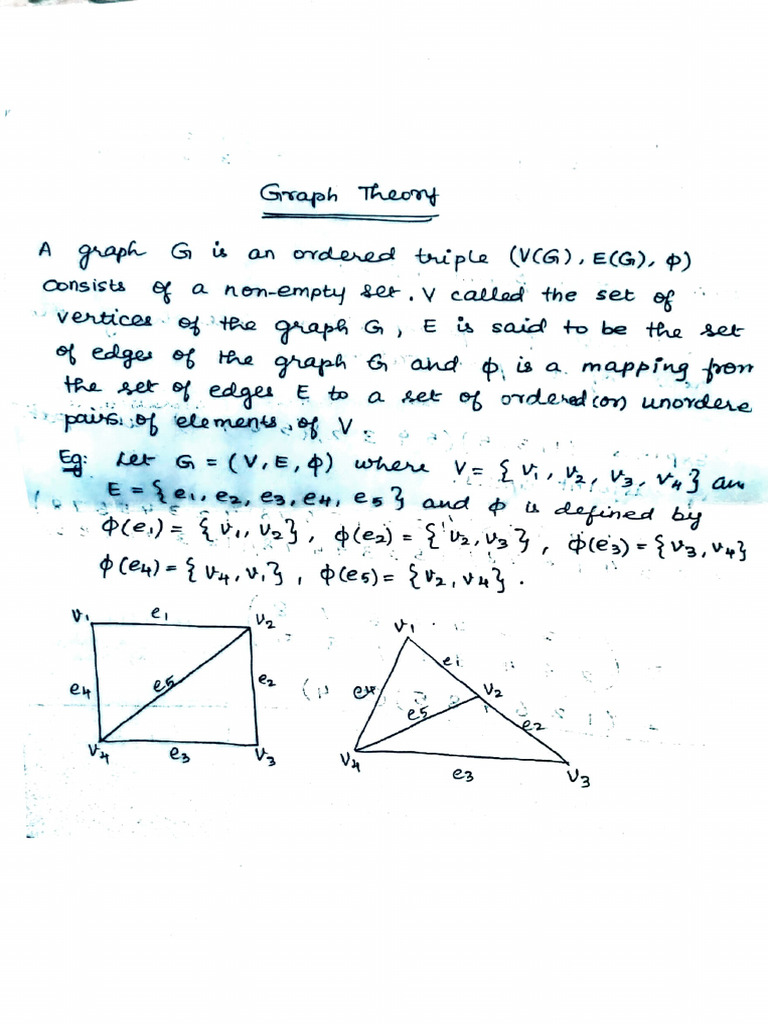 Graph Theory
A graph G is an ordered triple (V(G), E(G), ϕ)
consists of a non-empty set. V called the set of
vertices of the graph G, E is said to be the set
of edges of the graph G and ϕ is a mapping from
the set of edges E to a set of ordered (or) unordere
pairs of elements of V
Eg: Let G = (V, E, ϕ) where V = { v1, v2, v3, v4} an
E = {e1, e2, e3, e4, e5} and ϕ is defined by
ϕ(e1) = {v1, v2}, ϕ(e2) = {v2, v3}, ϕ(e3) = {v3, v4}
ϕ(e4) = {v4, v1}, ϕ(e5) = {v2, v4}.
v1 e1 v2
e4 e5 e2
v4 e3 v3
v1
e1
e4 e5 v2
e2
v4 e3 v3